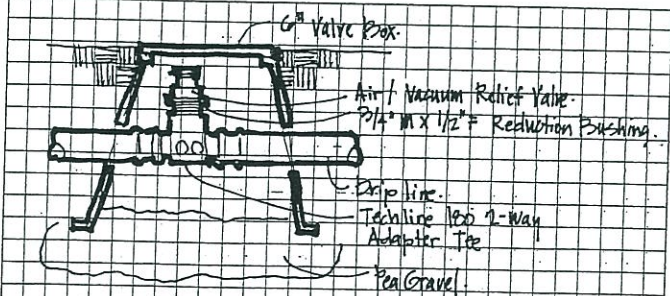 6" Valve Box.
Air / Vacuum Relief Valve.
3/4" M X 1/2" F Reduction Bushing.
Drip line.
Techline 180 2-way
Adapter Tee
Pea Gravel.